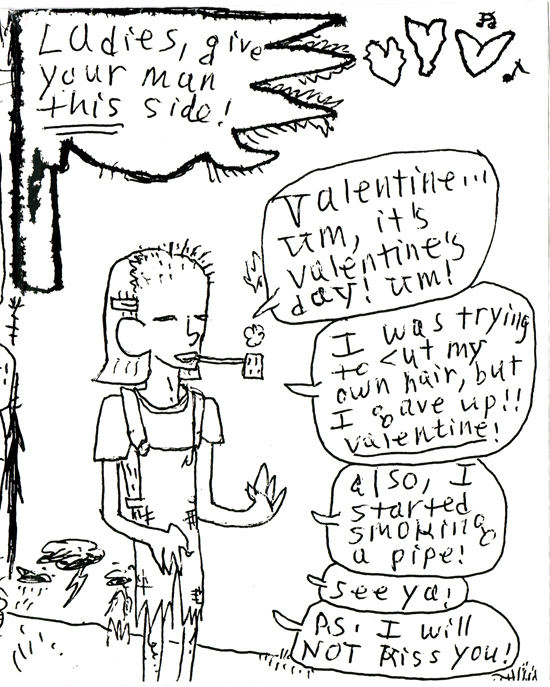 Ladies, give
your man
this side!
Valentine...
um, it's
valentine's
day! um!
I was trying
to cut my
own hair, but
I gave up!!
valentine!
also, I
started
smoking
a pipe!
see ya!
P.S. I will
NOT kiss you!